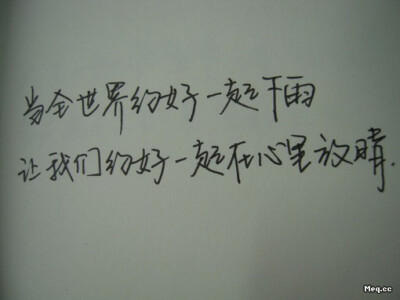 当全世界约好一起下雨
让我们约好一起在心里放晴.
Meq.cc